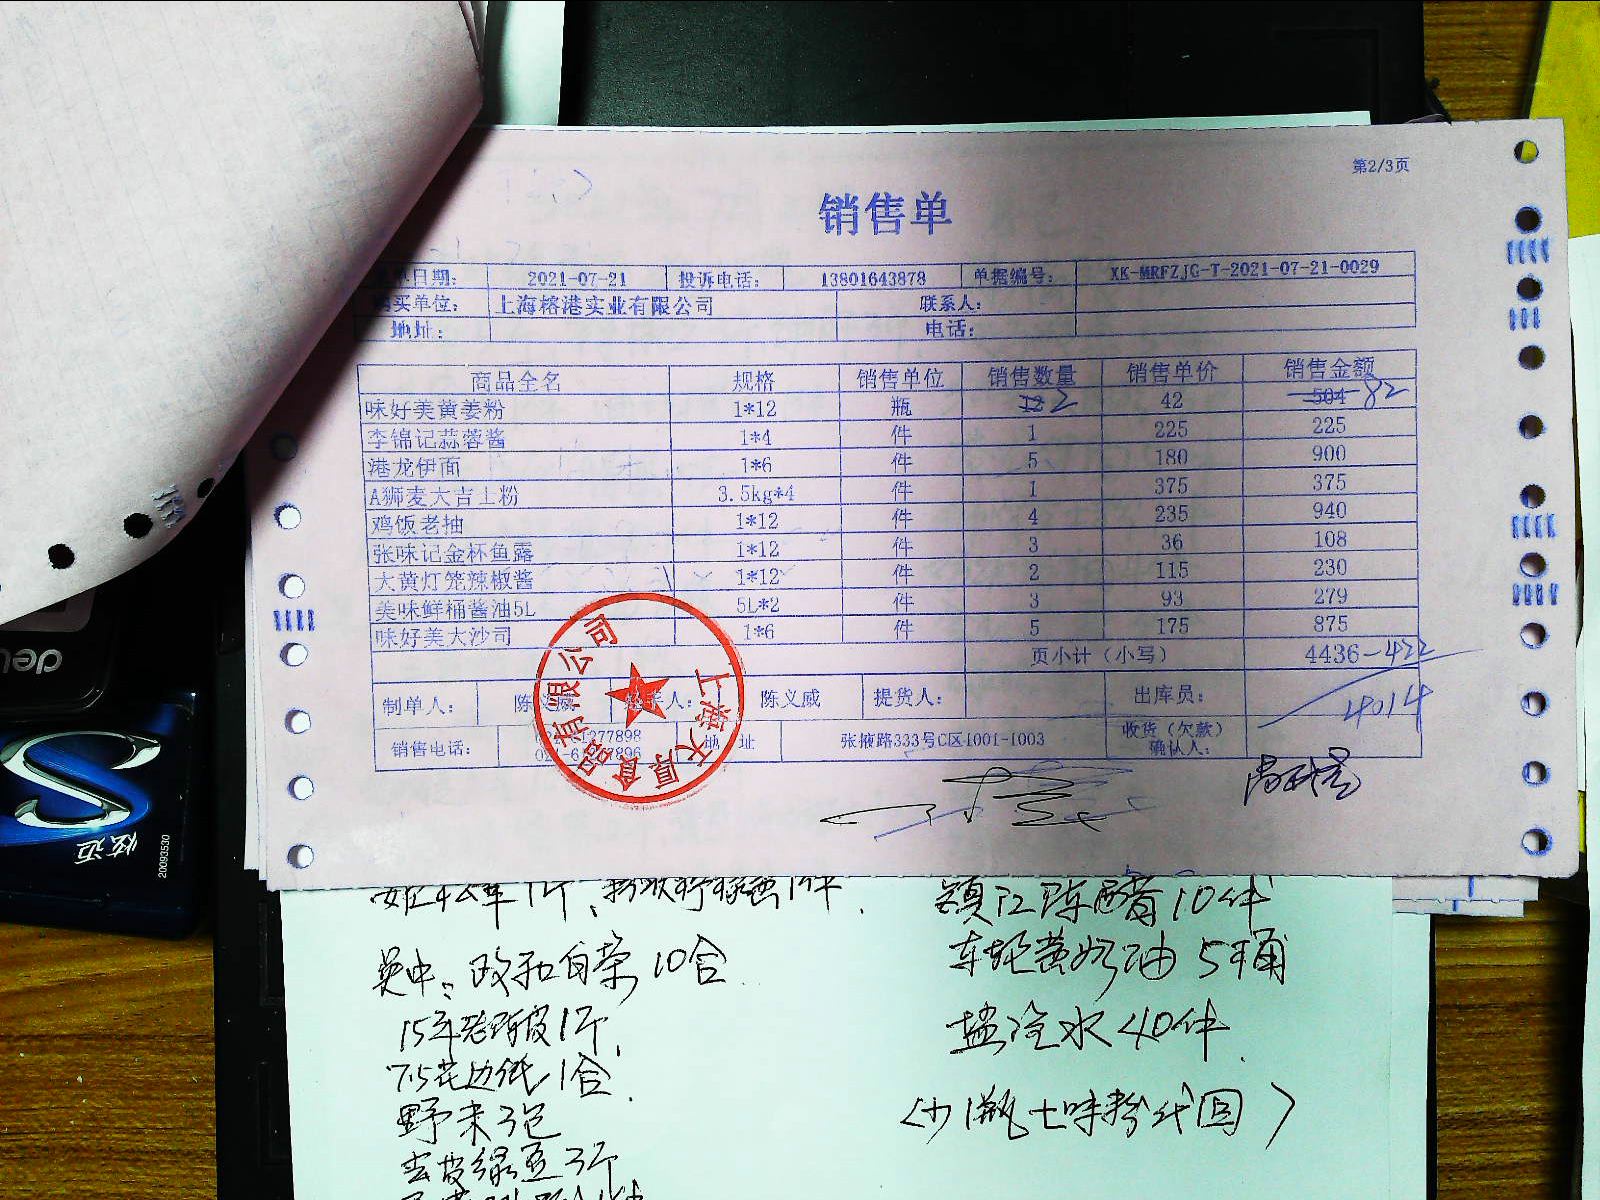 第2/3页
销售单
日期： 2021-07-21 投诉电话： 13801643878 单据编号： XK-MRFZJG-T-2021-07-21-0029
买单位： 上海榕港实业有限公司 联系人：
地址： 电话：
商品全名 规格 销售单位 销售数量 销售单价 销售金额
味好美黄姜粉 1*12 瓶 12 2 42 504 82
李锦记蒜蓉酱 1*4 件 1 225 225
港龙伊面 1*6 件 5 180 900
A狮麦大吉士粉 3.5kg*4 件 1 375 375
鸡饭老抽 1*12 件 4 235 940
张味记金杯鱼露 1*12 件 3 36 108
大黄灯笼辣椒酱 1*12 件 2 115 230
美味鲜桶酱油5L 5L*2 件 3 93 279
味好美大沙司 1*6 件 5 175 875
页小计（小写） 4436-422
4014
制单人： 陈义威 人： 陈义威 提货人： 出库员：
销售电话： 277898 地 址 张掖路333号C区1001-1003 收货（欠款）
确认人：
上海天厚食品有限公司
deli
炫迈
20093530
镇江陈醋10件
政和白茶10合
车轮黄奶油 5桶
15年老陈皮1斤
盐冷水40件
7.5花边纸1合
野米3包
（少1瓶七味粉代回）
去皮绿豆3斤